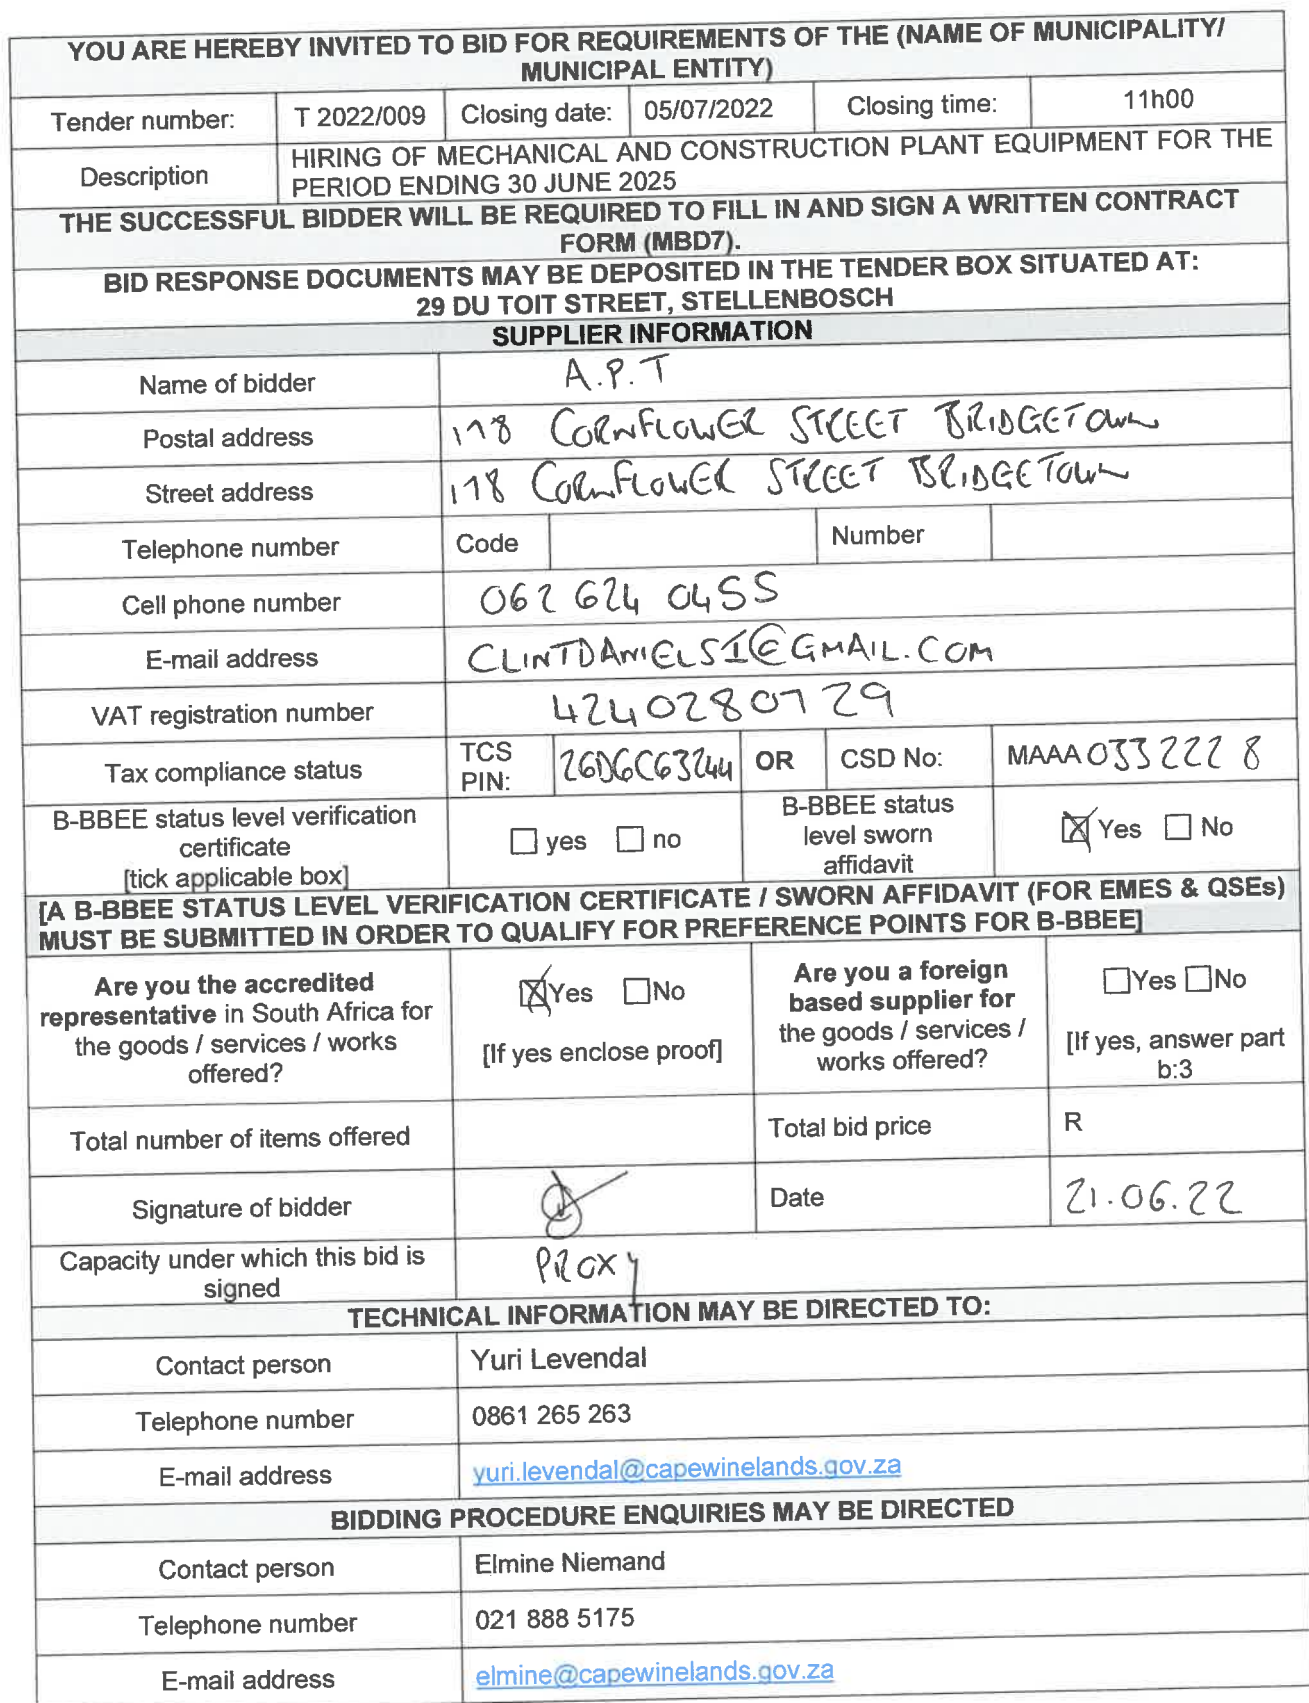 YOU ARE HEREBY INVITED TO BID FOR REQUIREMENTS OF THE (NAME OF MUNICIPALITY/
MUNICIPAL ENTITY)
Tender number: T 2022/009 Closing date: 05/07/2022 Closing time: 11h00
Description HIRING OF MECHANICAL AND CONSTRUCTION PLANT EQUIPMENT FOR THE
PERIOD ENDING 30 JUNE 2025
THE SUCCESSFUL BIDDER WILL BE REQUIRED TO FILL IN AND SIGN A WRITTEN CONTRACT
FORM (MBD7).
BID RESPONSE DOCUMENTS MAY BE DEPOSITED IN THE TENDER BOX SITUATED AT:
29 DU TOIT STREET, STELLENBOSCH
SUPPLIER INFORMATION
Name of bidder A.P.T
Postal address 178 CORNFLOWER STREET BRIDGETOWN
Street address 178 CORNFLOWER STREET BRIDGETOWN
Telephone number Code Number
Cell phone number 062 624 0455
E-mail address CLINTDANIELS1@GMAIL.COM
VAT registration number 4240280729
Tax compliance status TCS PIN: 26D6C63244 OR CSD No: MAAA0332228
B-BBEE status level verification
certificate
[tick applicable box]
yes no
B-BBEE status
level sworn
affidavit
Yes No
[A B-BBEE STATUS LEVEL VERIFICATION CERTIFICATE / SWORN AFFIDAVIT (FOR EMES & QSEs)
MUST BE SUBMITTED IN ORDER TO QUALIFY FOR PREFERENCE POINTS FOR B-BBEE]
Are you the accredited
representative in South Africa for
the goods / services / works
offered?
Yes No
[If yes enclose proof]
Are you a foreign
based supplier for
the goods / services /
works offered?
Yes No
[If yes, answer part
b:3
Total number of items offered Total bid price R
Signature of bidder Date 21.06.22
Capacity under which this bid is
signed
PROXY
TECHNICAL INFORMATION MAY BE DIRECTED TO:
Contact person Yuri Levendal
Telephone number 0861 265 263
E-mail address yuri.levendal@capewinelands.gov.za
BIDDING PROCEDURE ENQUIRIES MAY BE DIRECTED
Contact person Elmine Niemand
Telephone number 021 888 5175
E-mail address elmine@capewinelands.gov.za